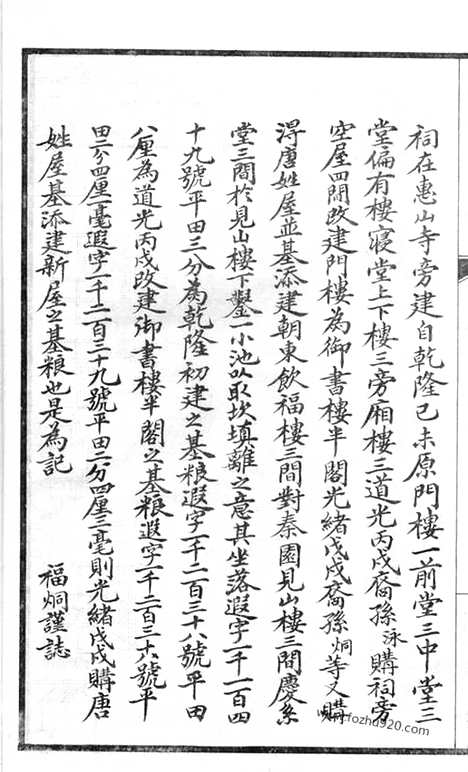 祠在惠山寺旁建自乾隆己未原門樓一前堂三中堂三
堂偏有樓寢堂上下樓三旁廂樓三道光丙戌裔孫泳購祠旁
空屋四間改建門樓為御書樓半閣光緒戊戌裔孫炯等又購
得唐姓屋並基添建朝東飲福樓三間對秦園見山樓三間慶系
堂三間於見山樓下鑿一小池以取坎填離之意其坐落遐字一千一百四
十九號平田三分為乾隆初建之基粮遐字一千二百三十八號平田
八厘為道光丙戌改建御書樓半閣之基粮遐字一千二百三十六號平
田三分四厘一毫遐字一千二百三十九號平田二分四厘三毫則光緒戊戌購唐
姓屋基添建新屋之基粮也是為記
福炯謹誌
www.fozhu920.com